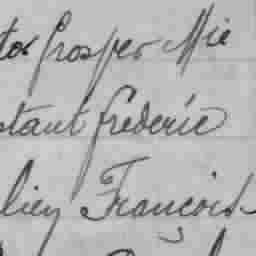 tor Prosper Mie
stant frederic
lien François